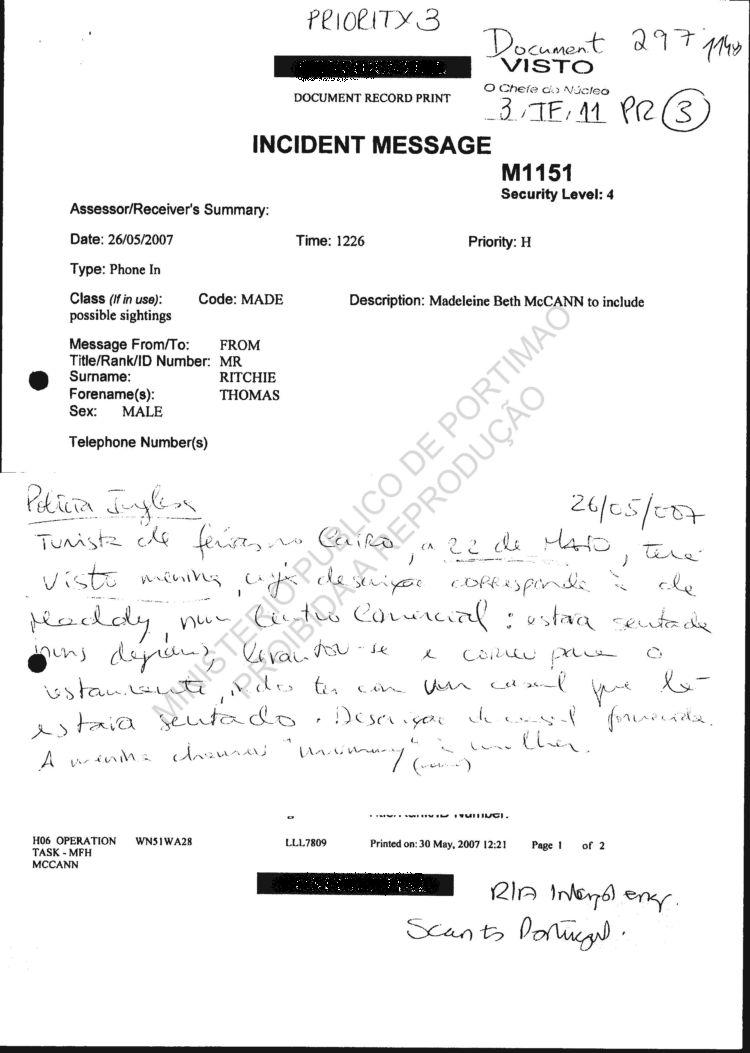 PRIORITY 3
Document 297 1148
VISTO
O Chefe do Núcleo
3/TF/11 PR 3
DOCUMENT RECORD PRINT
INCIDENT MESSAGE
M1151
Security Level: 4
Assessor/Receiver's Summary:
Date: 26/05/2007 Time: 1226 Priority: H
Type: Phone In
Class (If in use): Code: MADE Description: Madeleine Beth McCANN to include
possible sightings
Message From/To: FROM
Title/Rank/ID Number: MR
Surname: RITCHIE
Forename(s): THOMAS
Sex: MALE
Telephone Number(s)
MINISTÉRIO PÚBLICO DE PORTIMAO
PROIBIDA A REPRODUÇÃO
Policia Inglesa 26/05/007
Turista de férias no Cairo, a 22 de MAIO, terá
visto menina cuja descrição corresponde à de
Maddy, num Centro Comercial: estava sentada
nuns degraus, levantou-se e correu para o
restaurante, ter com um casal que lá
estava sentado. Descrição do casal fornecida.
A menina chamou "mummy" à mulher.
Number:
H06 OPERATION WN51WA28 LLL7809 Printed on: 30 May, 2007 12:21 Page 1 of 2
TASK - MFH
MCCANN
R/A Interpol enq.
Scan to Portugal.